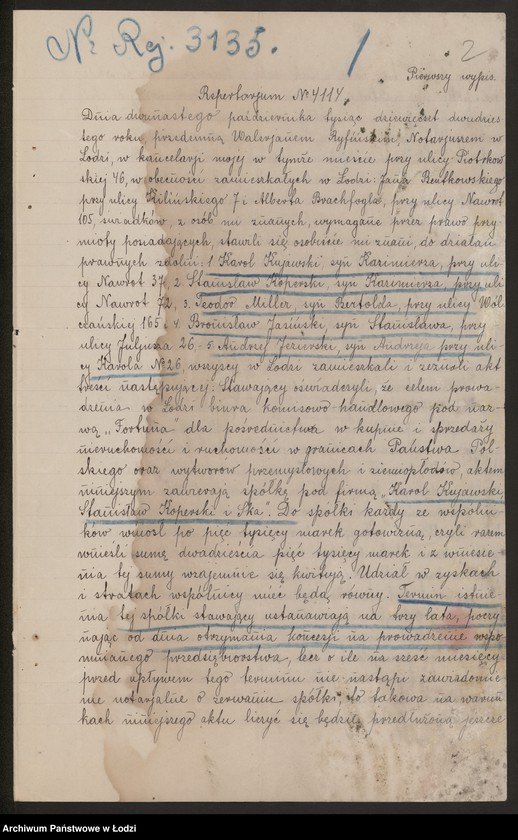 Nr Rej. 3135.
1
2
Pierwszy wypis.
Repertorjum № 4114
Dnia dwunastego października tysiąc dziewięćset dwudzies-
tego roku, przedemną Walerjanem Ryfińskim, Notarjuszem w
Łodzi, w kancelarji mojej w tymże mieście przy ulicy Piotrkow-
skiej 46, w obecności zamieszkałych w Łodzi: Jana Rutkowskiego
przy ulicy Kilińskiego 7 i Alberta Brachfogla, przy ulicy Nawrot
105, świadków, z osób mi znanych, wymagane przez prawo przy-
mioty posiadających, stawili się osobiście mi znani, do działań
prawnych zdolni: 1. Karol Kujawski, syn Kazimierza, przy uli-
cy Nawrot 37, 2. Stanisław Koperski, syn Kazimierza, przy uli
cy Nawrot 72, 3. Teodor Miller, syn Bertolda, przy ulicy Wól-
czańskiej 165, 4. Bronisław Jasiński, syn Stanisława, przy
ulicy Juljusza 26, 5. Andrzej Jeziorski, syn Andrzeja przy uli-
cy Karola № 26, wszyscy w Łodzi zamieszkali i zeznali akt
treści następującej: Stawający oświadczyli, że celem prowa-
dzenia w Łodzi biura komisowo-handlowego pod naz-
wą „Fortuna" dla pośrednictwa w kupnie i sprzedaży
nieruchomości i ruchomości w granicach Państwa Pol-
skiego oraz wytworów przemysłowych i ziemiopłodów, aktem
niniejszym zawierają spółkę pod firmą „Karol Kujawski,
Stanisław Koperski i S-ka". Do spółki każdy ze wspólni-
ków wniósł po pięć tysięcy marek gotowizną, czyli razem
wnieśli sumę dwadzieścia pięć tysięcy marek i z wniesie-
nia tej sumy wzajemnie się kwitują. Udział w zyskach
i stratach wspólnicy mieć będą równy. Termin istnie-
nia tej spółki stawający ustanawiają na trzy lata, poczy-
nając od dnia otrzymania koncesji na prowadzenie wspo-
mnianego przedsiębiorstwa, lecz o ile na sześć miesięcy
przed upływem tego terminu nie nastąpi zawiadomie-
nie notarjalne o zerwaniu spółki, to takowa na warun-
kach niniejszego aktu liczyć się będzie przedłużoną jeszcze
Archiwum Państwowe w Łodzi